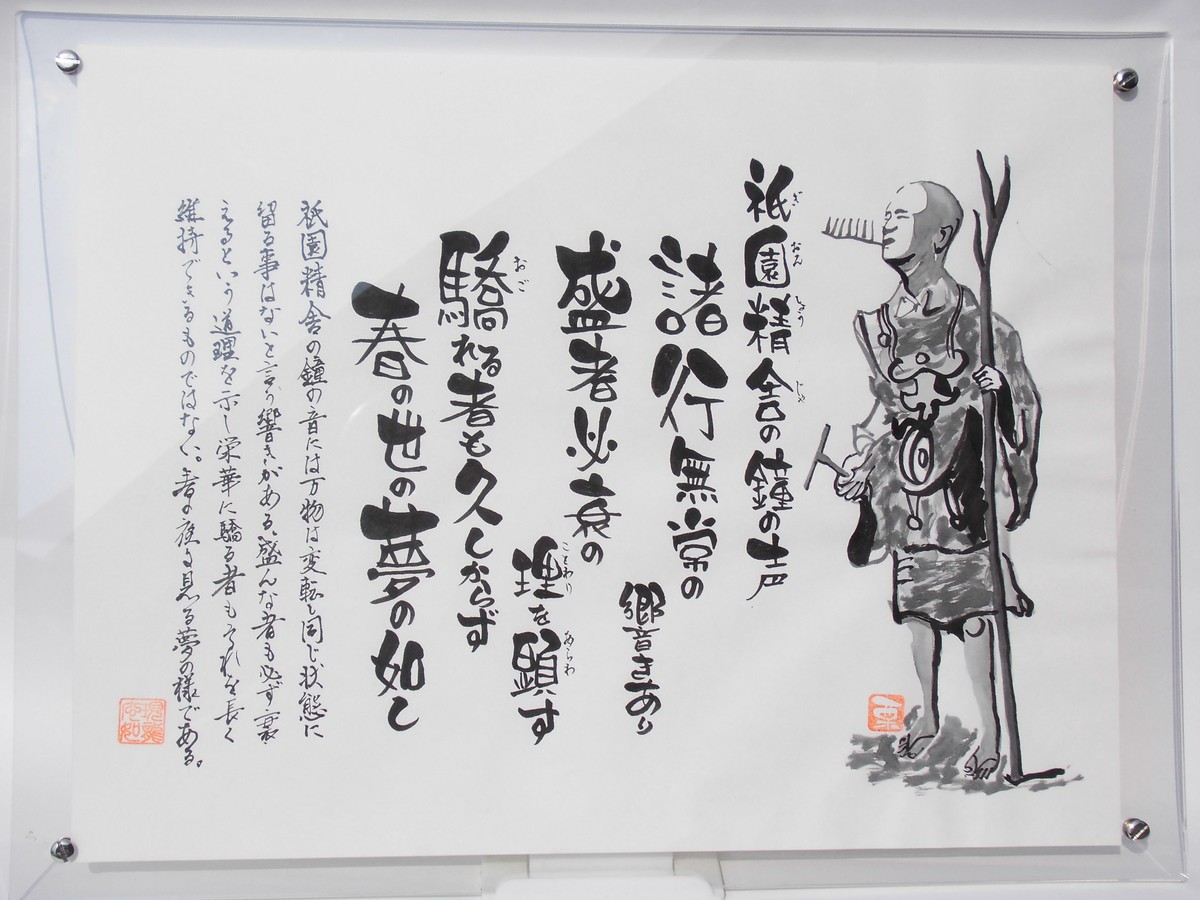 祇園精舎の鐘の声
諸行無常の
響きあり
盛者必衰の
理を顕す
驕れる者も久しからず
春の世の夢の如し
祇園精舎の鐘の音には万物は変転し同じ状態に
留る事はないと言う響きがある。盛んな者も必ず衰
えるという道理を示し栄華に驕る者もそれを長く
維持できるものではない。春の夜に見る夢の様である。
ぎ
おん
しょう
じゃ
ことわり
あらわ
おご